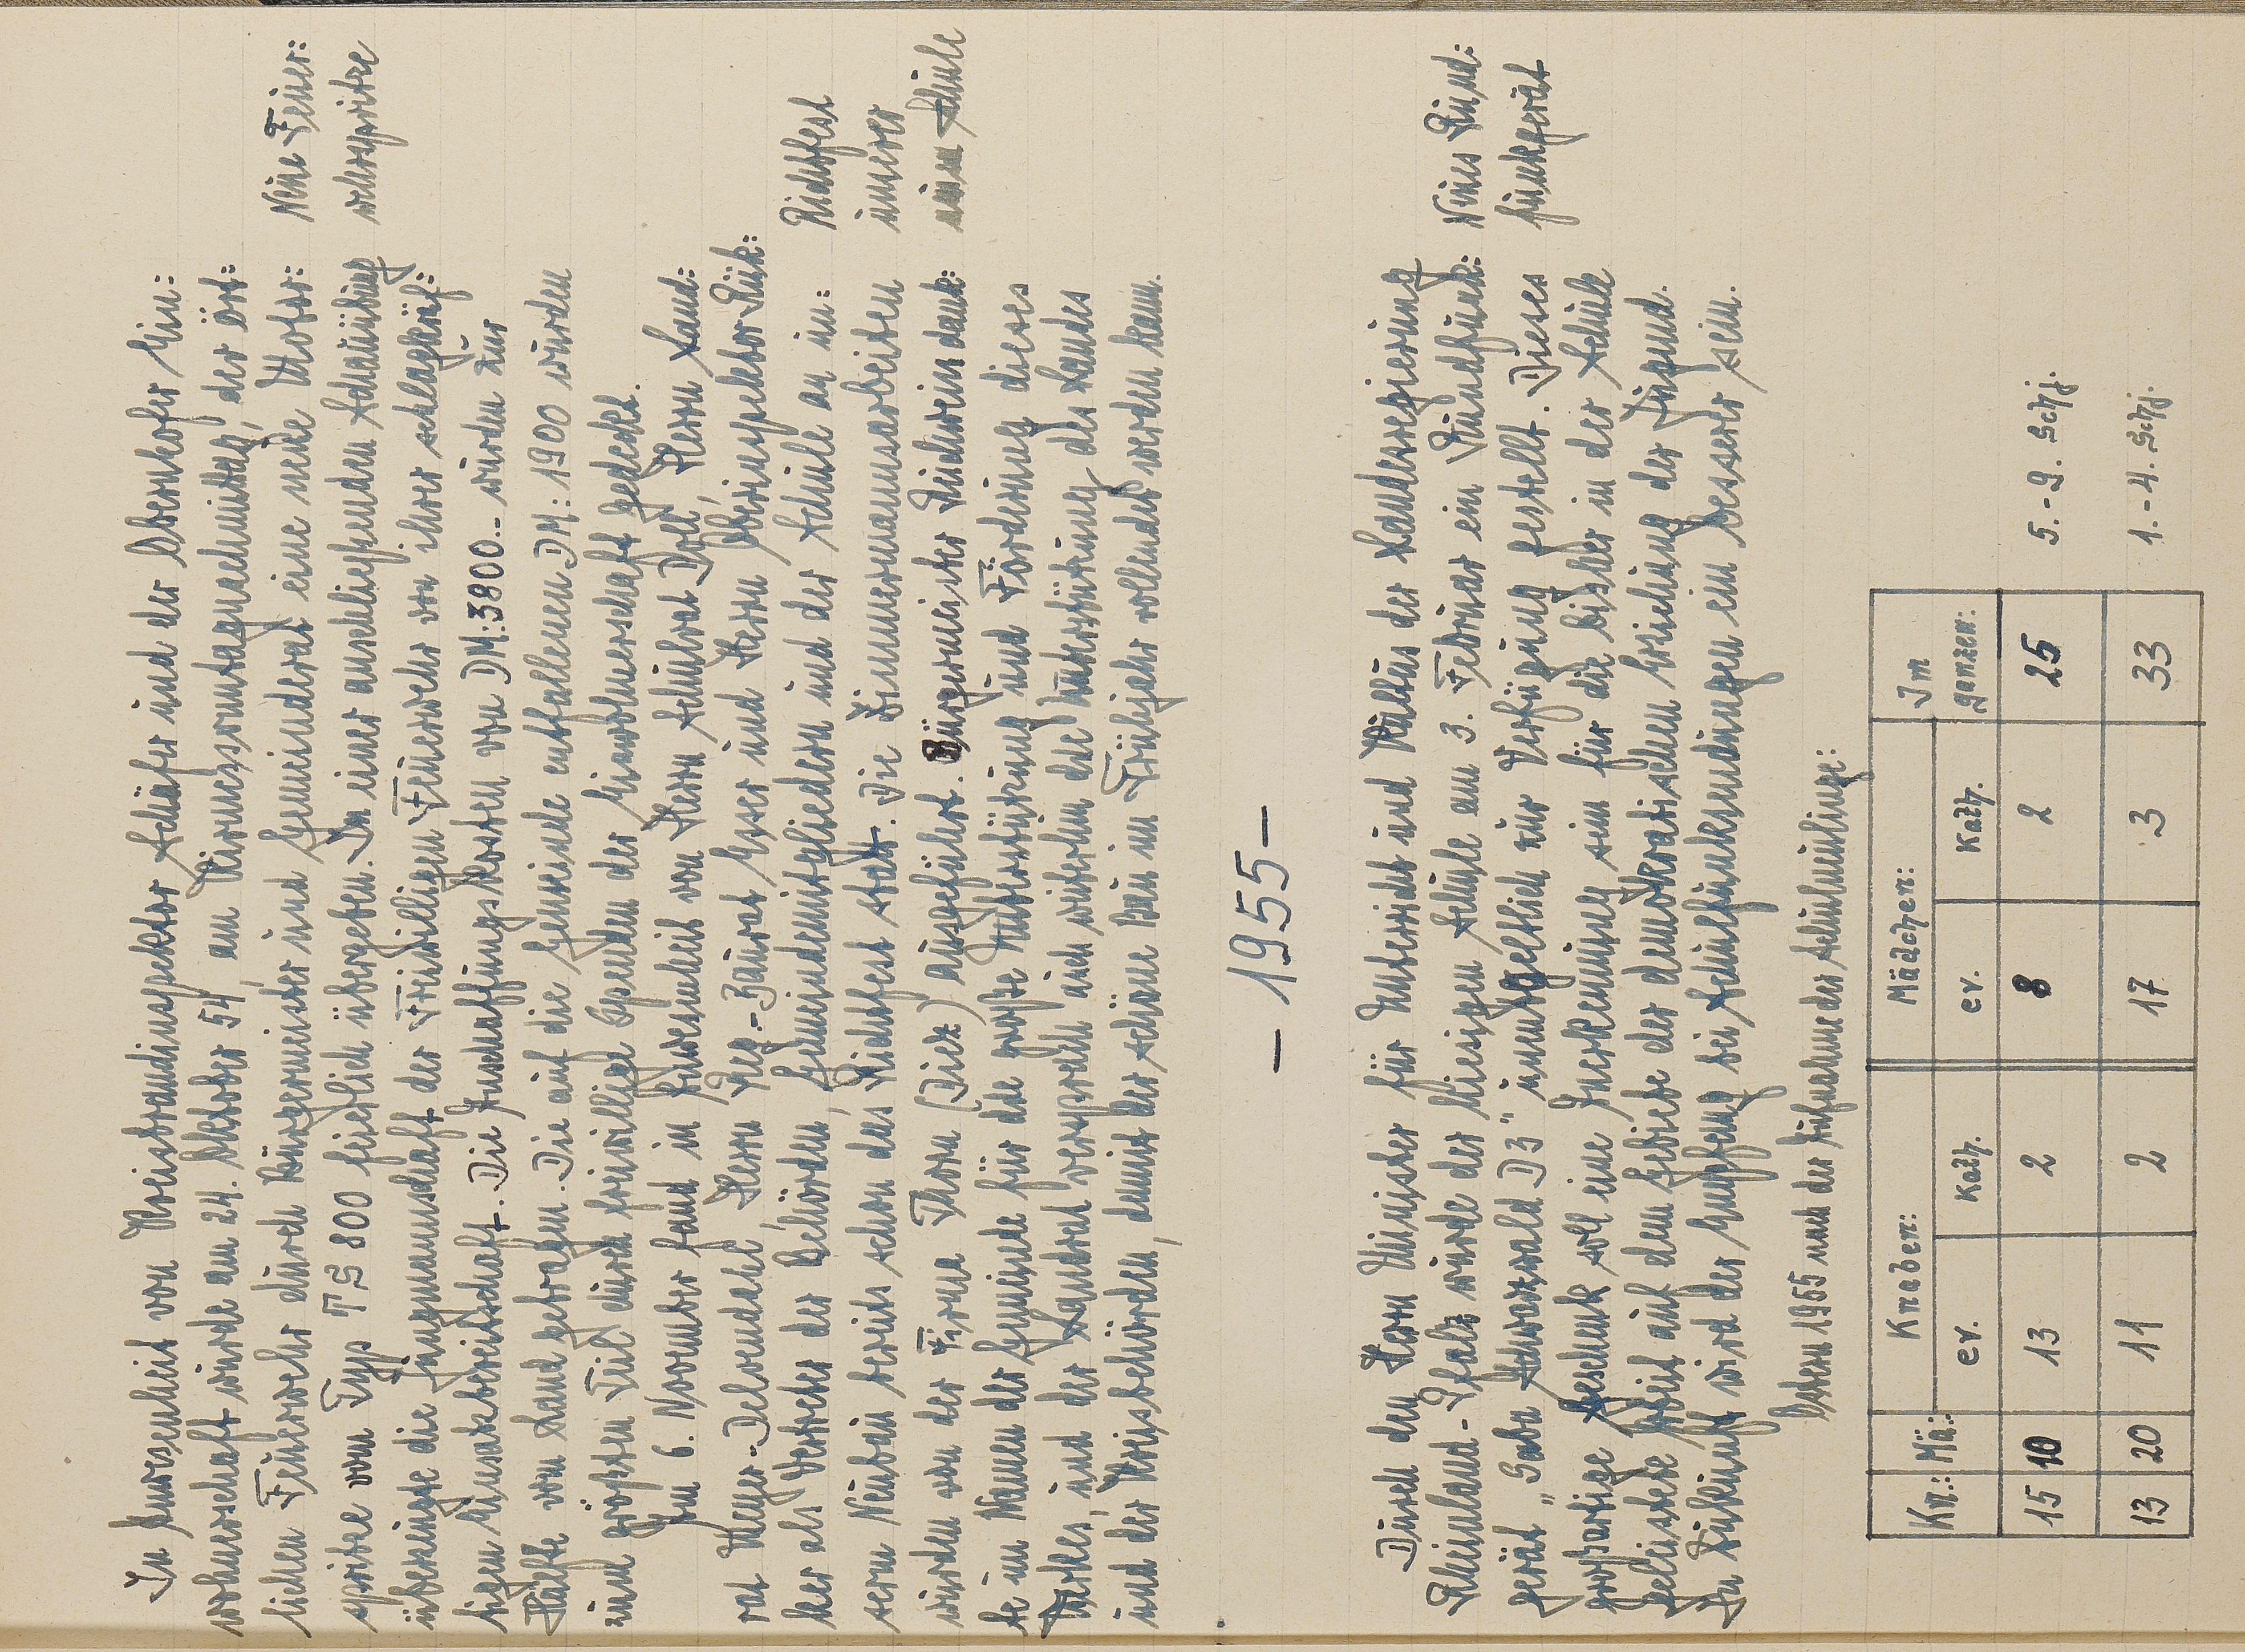 In Anwesenheit von Kreisbrandinspektor Schäfer und der Ebernhofer Ein:
wohnerschaft wurde am 24. Oktober 54, am Kirmessonntagnachmittag, der ört:
lichen Feuerwehr durch Bürgermeister und Gemeinderat eine neue Motor:
spritze vom Typ TS 800 feierlich übergeben. In einer anschließenden Schauübung
überzeugte die Jungmannschaft der Freiwilligen Feuerwehr von ihrer schlagkräf:
tigen Einsatzbereitschaft. Die Anschaffungskosten von DM: 3800.- wurden zur
Hälfte vom Land getragen. Die auf die Gemeinde entfallenen DM: 1900 wurden
zum größten Teil durch freiwillige Spenden der Einwohnerschaft gedeckt.
Neue Feuer:
wehrspritze
Am 6. November fand in Anwesenheit von Herrn Schulrat Doll, Herrn Land:
rat Meyer-Delvendahl, Herrn Reg.-Baurat Esser und Herrn Oberinspektor Rück:
ker als Vertreter der Behörden, Gemeindemitgliedern und der Schule an un:
serm Neubau bereits schon das Richtfest statt. Die Zimmermannsarbeiten
wurden von der Firma Thorn (Diez) ausgeführt. Bürgermeister Heuchemer dank:
te im Namen der Gemeinde für die große Unterstützung und Förderung dieses
Werkes, und der Landrat versprach auch weiterhin die Unterstützung des Landes
und der Kreisbehörden, damit der schöne Bau im Frühjahr vollendet werden kann.
Richtfest
unserer
neuen Schule
- 1955 -
Durch den Herrn Minister für Unterricht und Kultus der Landesregierung
Rheinland-Pfalz wurde der hiesigen Schule am 3. Februar ein Rundfunk:
gerät „Saba Schwarzwald D3" unentgeltlich zur Verfügung gestellt. Dieses
großartige Geschenk soll eine Anerkennung sein für die bisher in der Schule
geleistete Arbeit auf dem Gebiete der demokratischen Erziehung der Jugend.
In Zukunft wird der Empfang bei Schulfunksendungen ein besserer sein.
Neues Rund:
funkgerät
Ostern 1955 nach der Aufnahme der Schulneulinge:
Kn.: Mä.: Knaben: Mädchen: Im
ev. Kath. ev. Kath. ganzen:
15 10 13 2 8 2 25 5.-9. Schj.
13 20 11 2 17 3 33 1.-4. Schj.